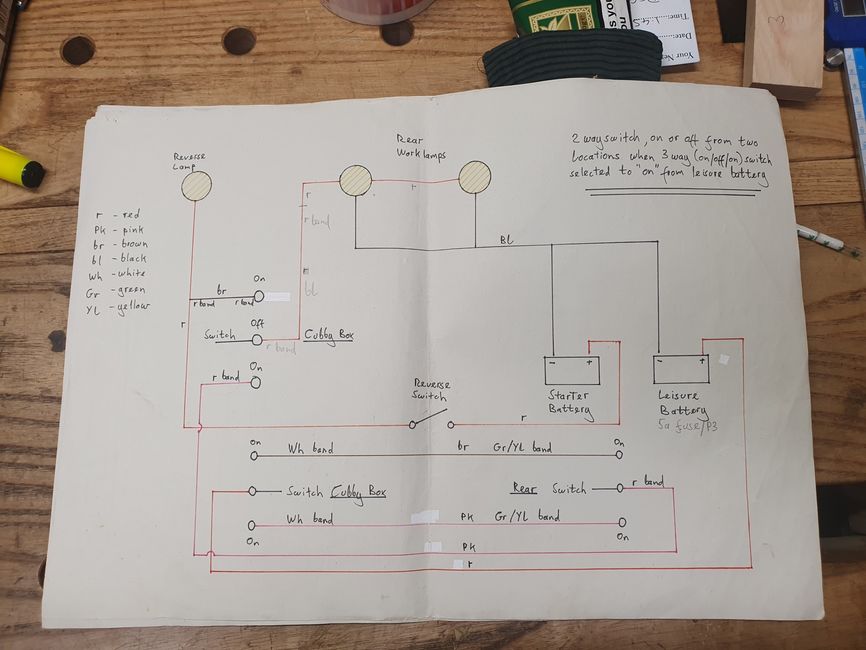 Reverse
Lamp
Rear
Work lamps
2 way switch, on or off from two
locations when 3 way (on/off/on) switch
selected to "on" from leisure battery
r - red
Pk - pink
br - brown
bl - black
Wh - white
Gr - green
YL - yellow
r
r
r band
bl
BL
On
br
r band
r band
Off
Switch
r band
Cubby Box
r
On
r band
Reverse
Switch
r
-
+
Starter
Battery
-
+
Leisure
Battery
5a fuse/P3
On
Wh band
br
Gr/YL band
On
Switch Cubby Box
Rear Switch
r band
Wh band
Pk
Gr/YL band
On
On
Pk
r
Time:
Date:
Your Ne
s you
ou
3